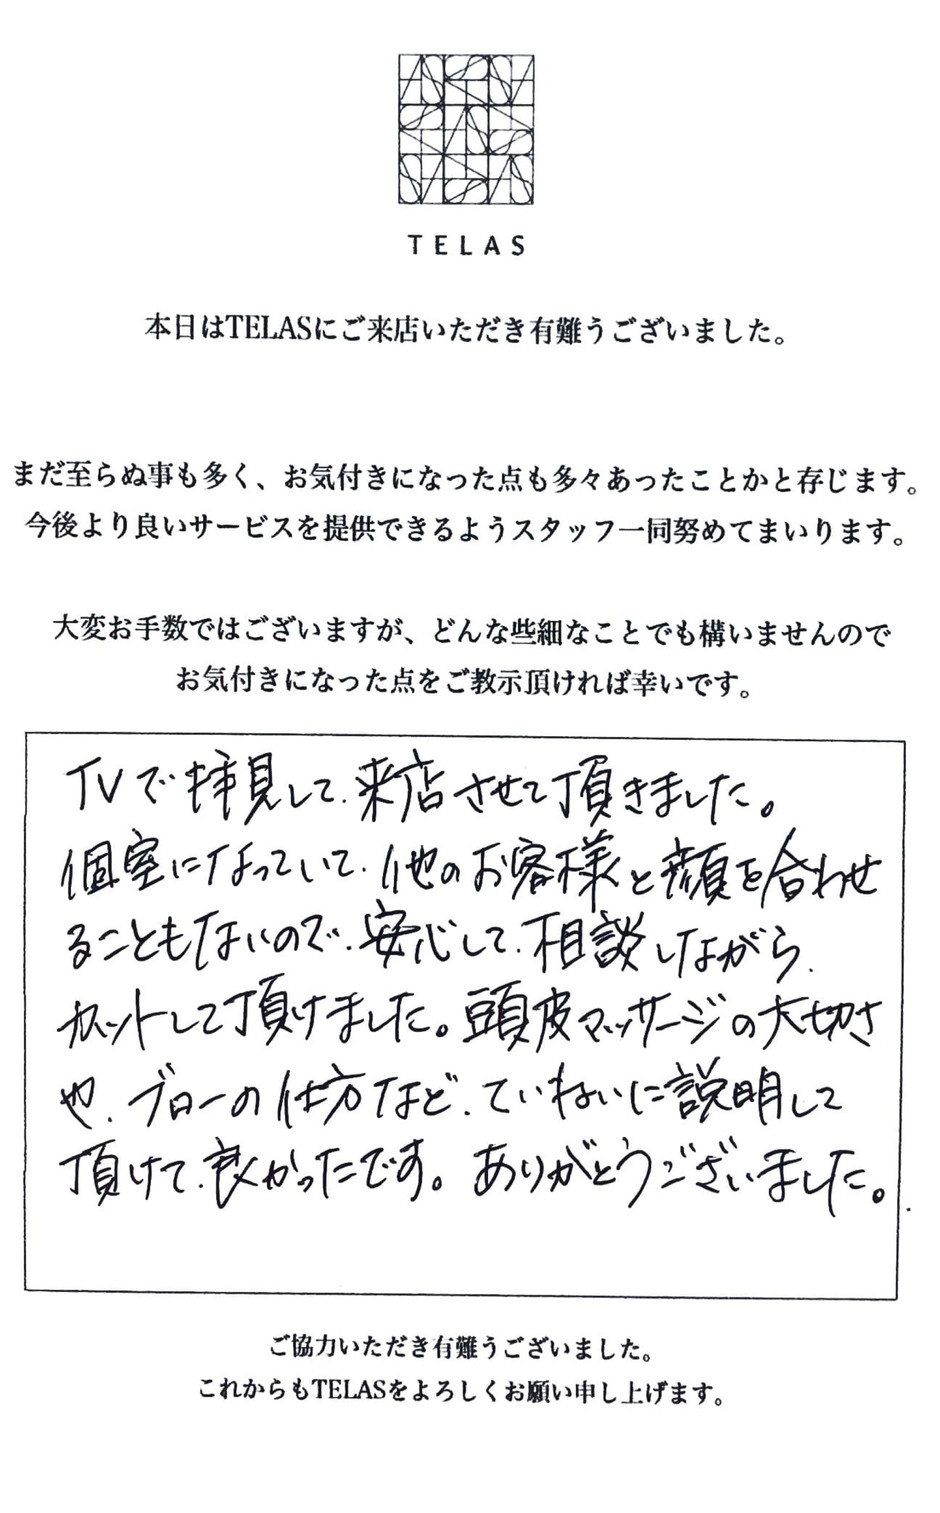 TELAS
本日はTELASにご来店いただき有難うございました。
まだ至らぬ事も多く、お気付きになった点も多々あったことかと存じます。
今後より良いサービスを提供できるようスタッフ一同努めてまいります。
大変お手数ではございますが、どんな些細なことでも構いませんので
お気付きになった点をご教示頂ければ幸いです。
TVで拝見して、来店させて頂きました。
個室になっていて、他のお客様と顔を合わせ
ることもないので、安心して、相談しながら、
カットして頂けました。頭皮マッサージの大切さ
や、ブローの仕方など、ていねいに説明して
頂けて、良かったです。ありがとうございました。
ご協力いただき有難うございました。
これからもTELASをよろしくお願い申し上げます。